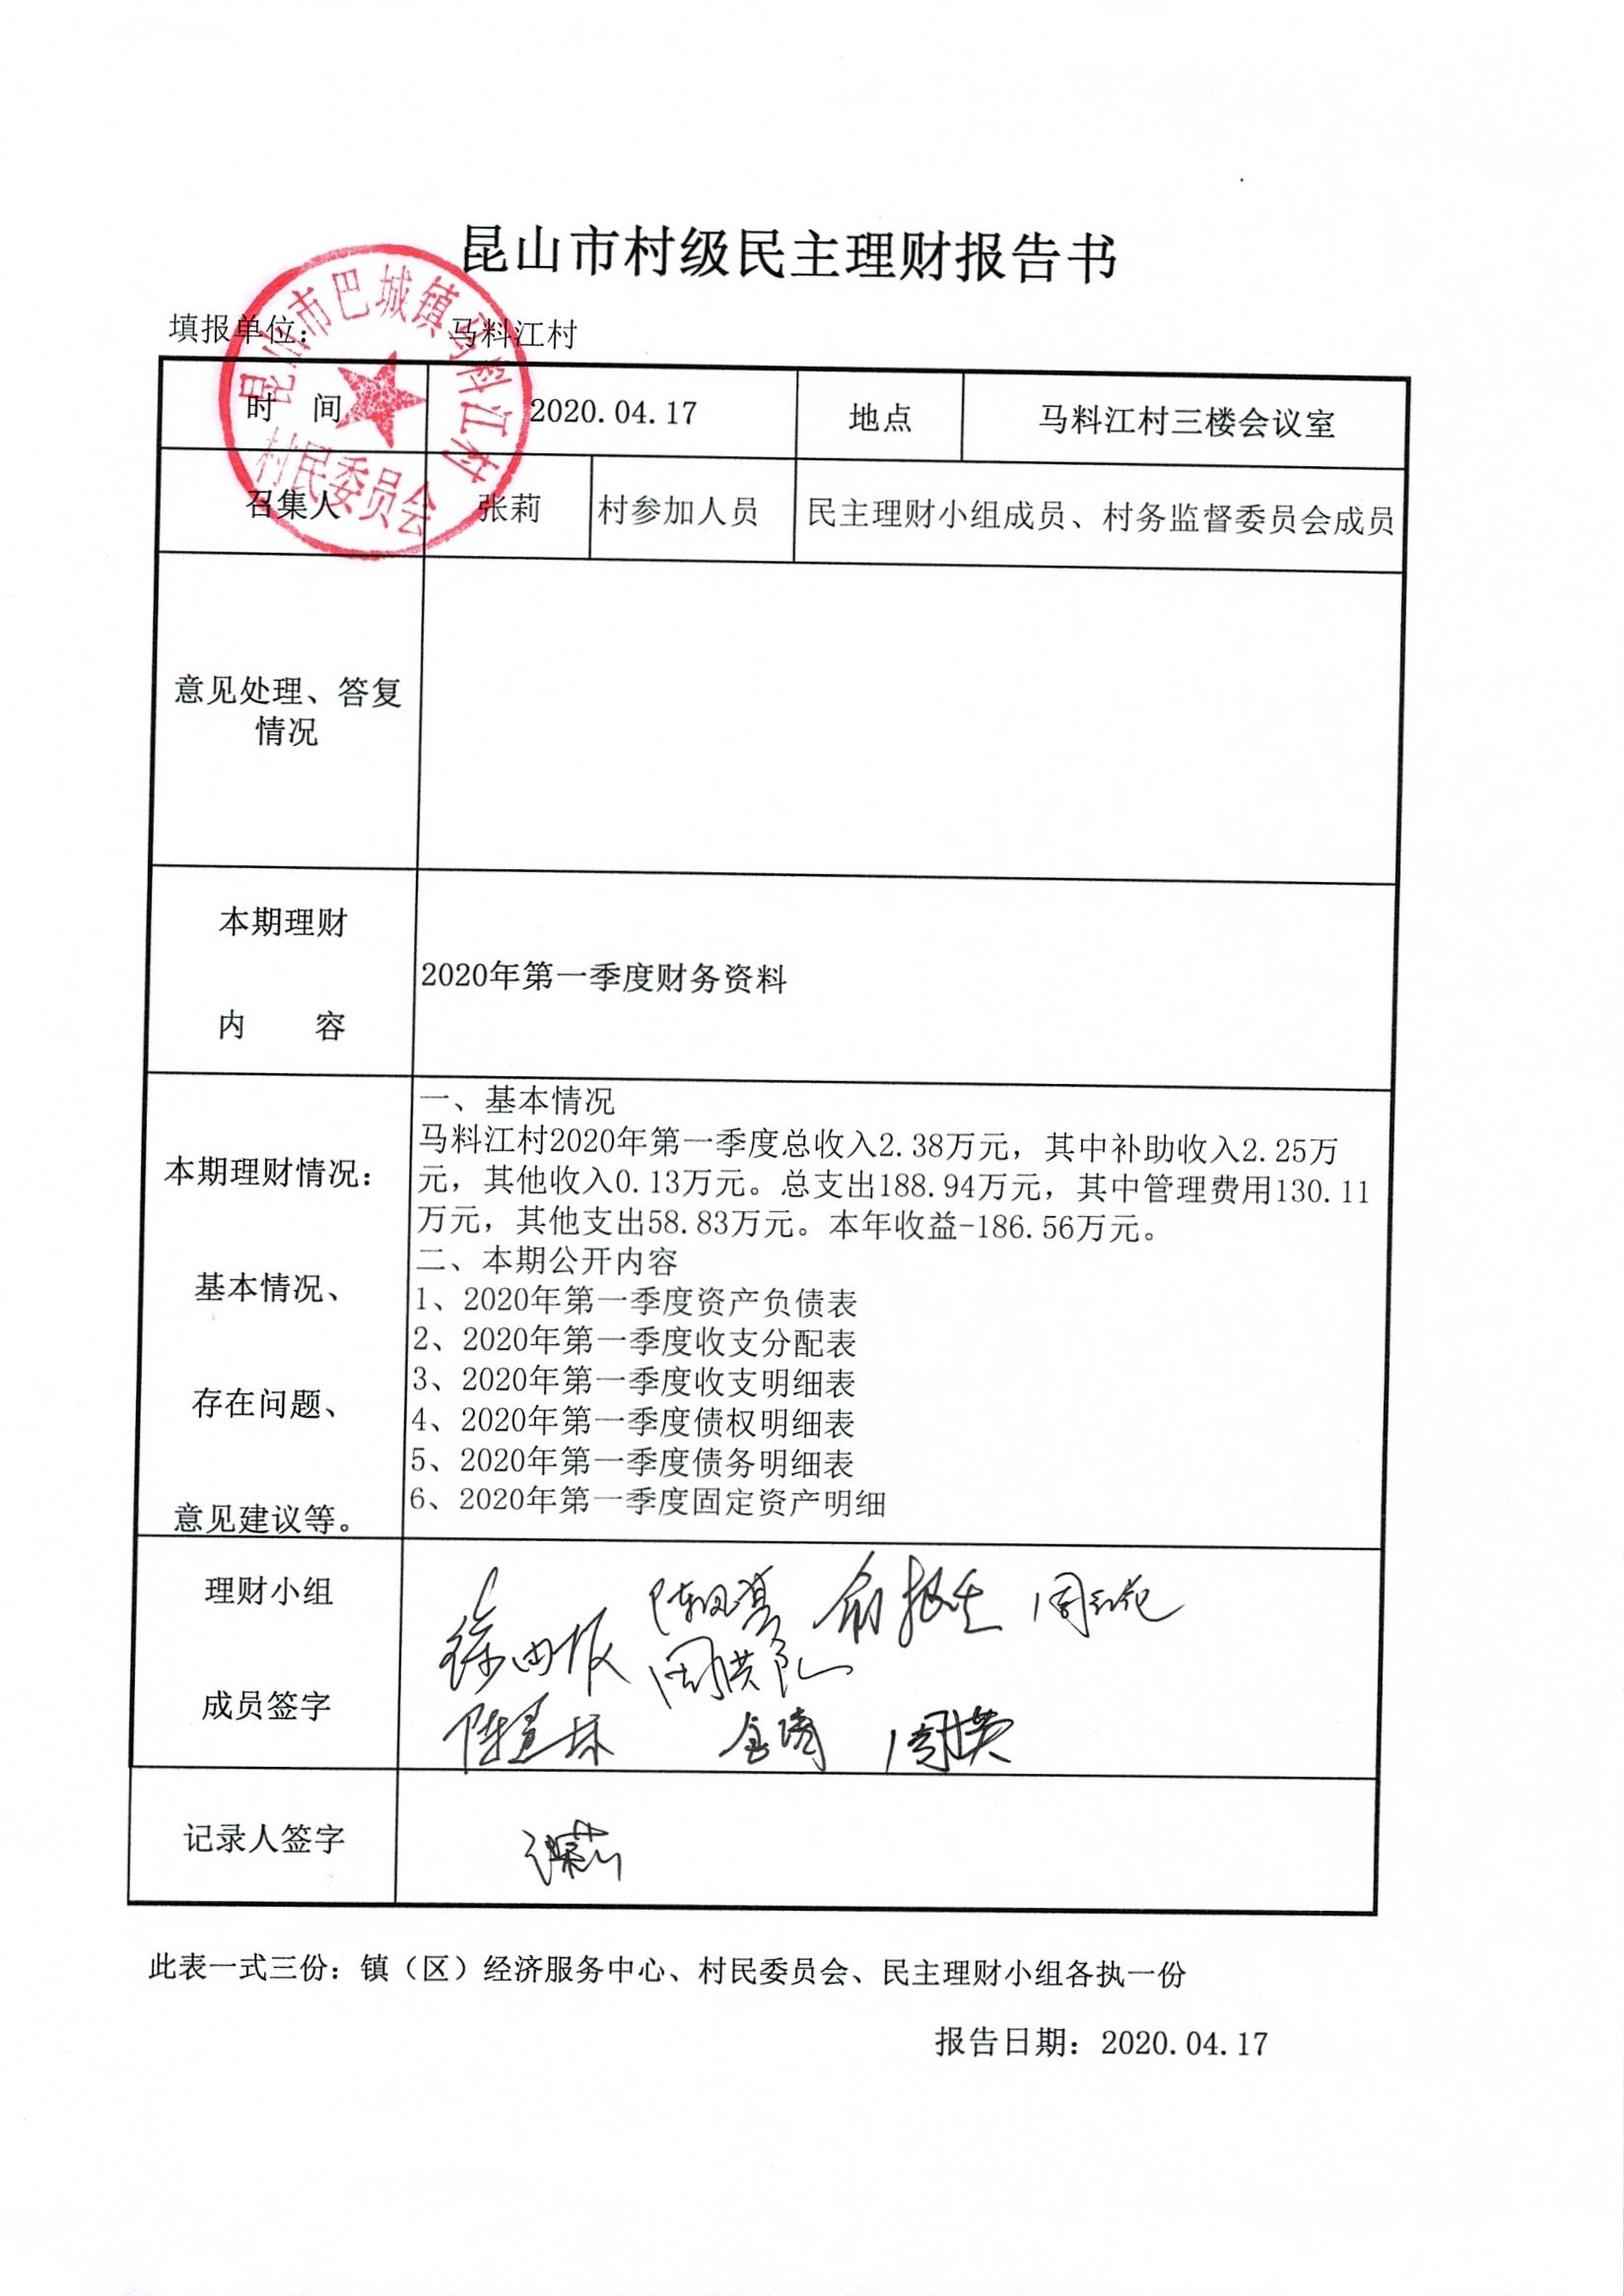 昆山市村级民主理财报告书
昆山市巴城镇马料江村
村民委员会
填报单位： 马料江村
时 间 2020.04.17 地点 马料江村三楼会议室
召集人 张莉 村参加人员 民主理财小组成员、村务监督委员会成员
意见处理、答复
情况
本期理财
内 容
2020年第一季度财务资料
本期理财情况：
基本情况、
存在问题、
意见建议等。
一、基本情况
马料江村2020年第一季度总收入2.38万元，其中补助收入2.25万
元，其他收入0.13万元。总支出188.94万元，其中管理费用130.11
万元，其他支出58.83万元。本年收益-186.56万元。
二、本期公开内容
1、2020年第一季度资产负债表
2、2020年第一季度收支分配表
3、2020年第一季度收支明细表
4、2020年第一季度债权明细表
5、2020年第一季度债务明细表
6、2020年第一季度固定资产明细
理财小组
成员签字
记录人签字
张莉
此表一式三份：镇（区）经济服务中心、村民委员会、民主理财小组各执一份
报告日期：2020.04.17